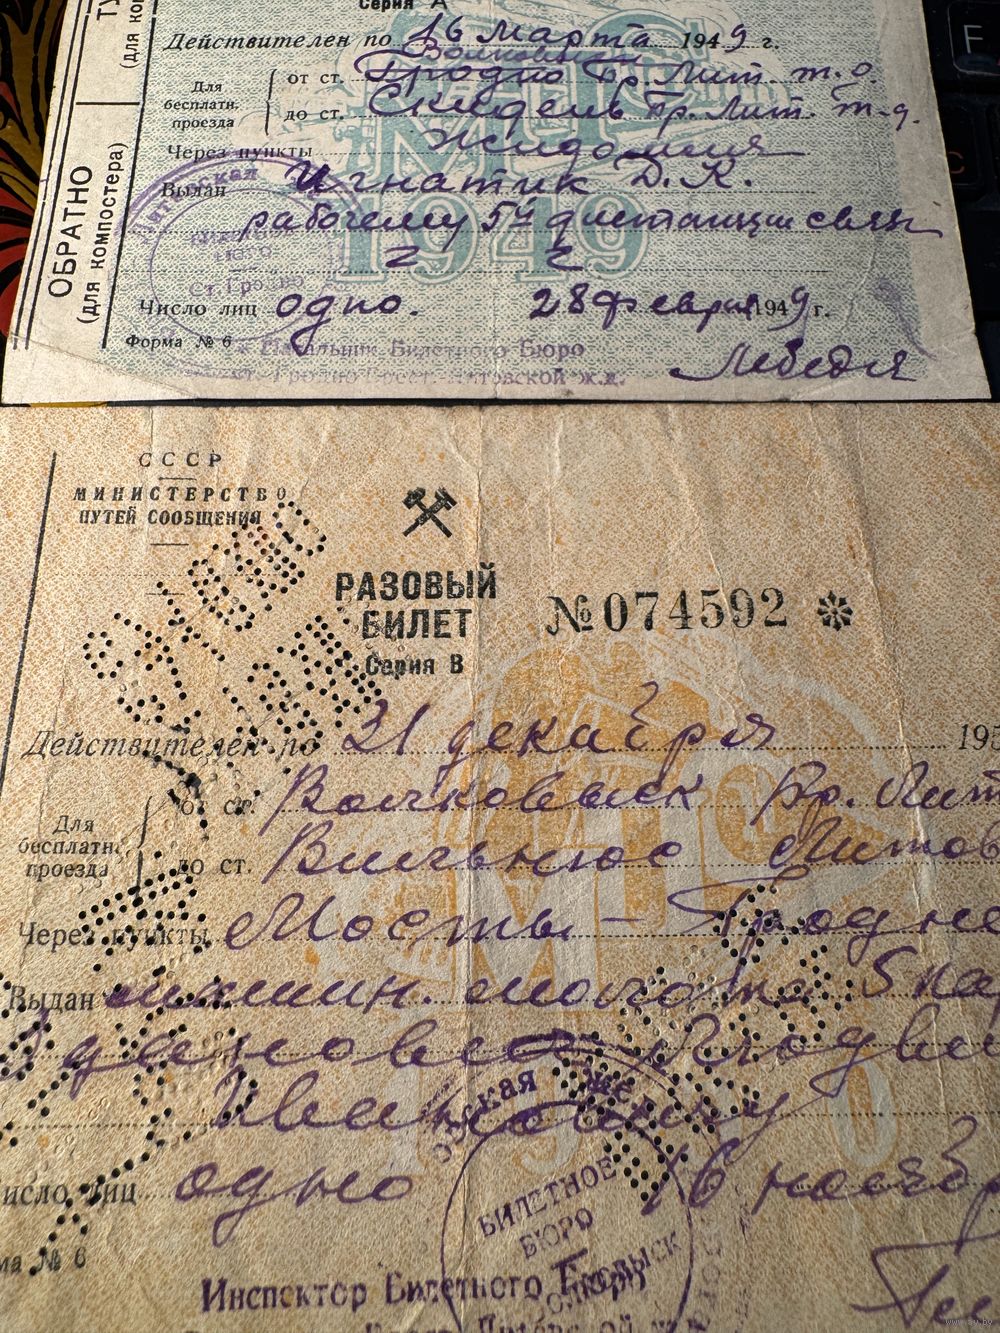 Серия А
Действителен по 16 марта 1949 г.
Волковыск
Для бесплатн. проезда
от ст. Гродно Бр. Лит. ж.д.
до ст. Скидель Бр. Лит. ж.д.
Через пункты Жидомля
Выдан Игнатик Д. К.
рабочему 5й дистанции связи
1949
Число лиц одно. 28 февраля 1949 г.
Форма № 6
Начальник Билетного Бюро
ст. Гродно Брест-Литовской ж.д.
Лебедя
ТУ
(для ком
ОБРАТНО
(для компостера)
Литовская
Бюро
Ст. Гродно
СССР
МИНИСТЕРСТВО
ПУТЕЙ СООБЩЕНИЯ
РАЗОВЫЙ
БИЛЕТ
Серия В
№ 074592
Действителен по 31 декабря 195
Для бесплатн. проезда
от ст. Волковыск Бр. Лит
до ст. Вильнюс Литов
Через пункты Мосты - Гродне
Выдан машин.
Ивановичу
исло лиц одно 16 ноябр
ма № 6
БИЛЕТНОЕ
БЮРО
Инспектор Билетного Бюро
F
С
www.su.by